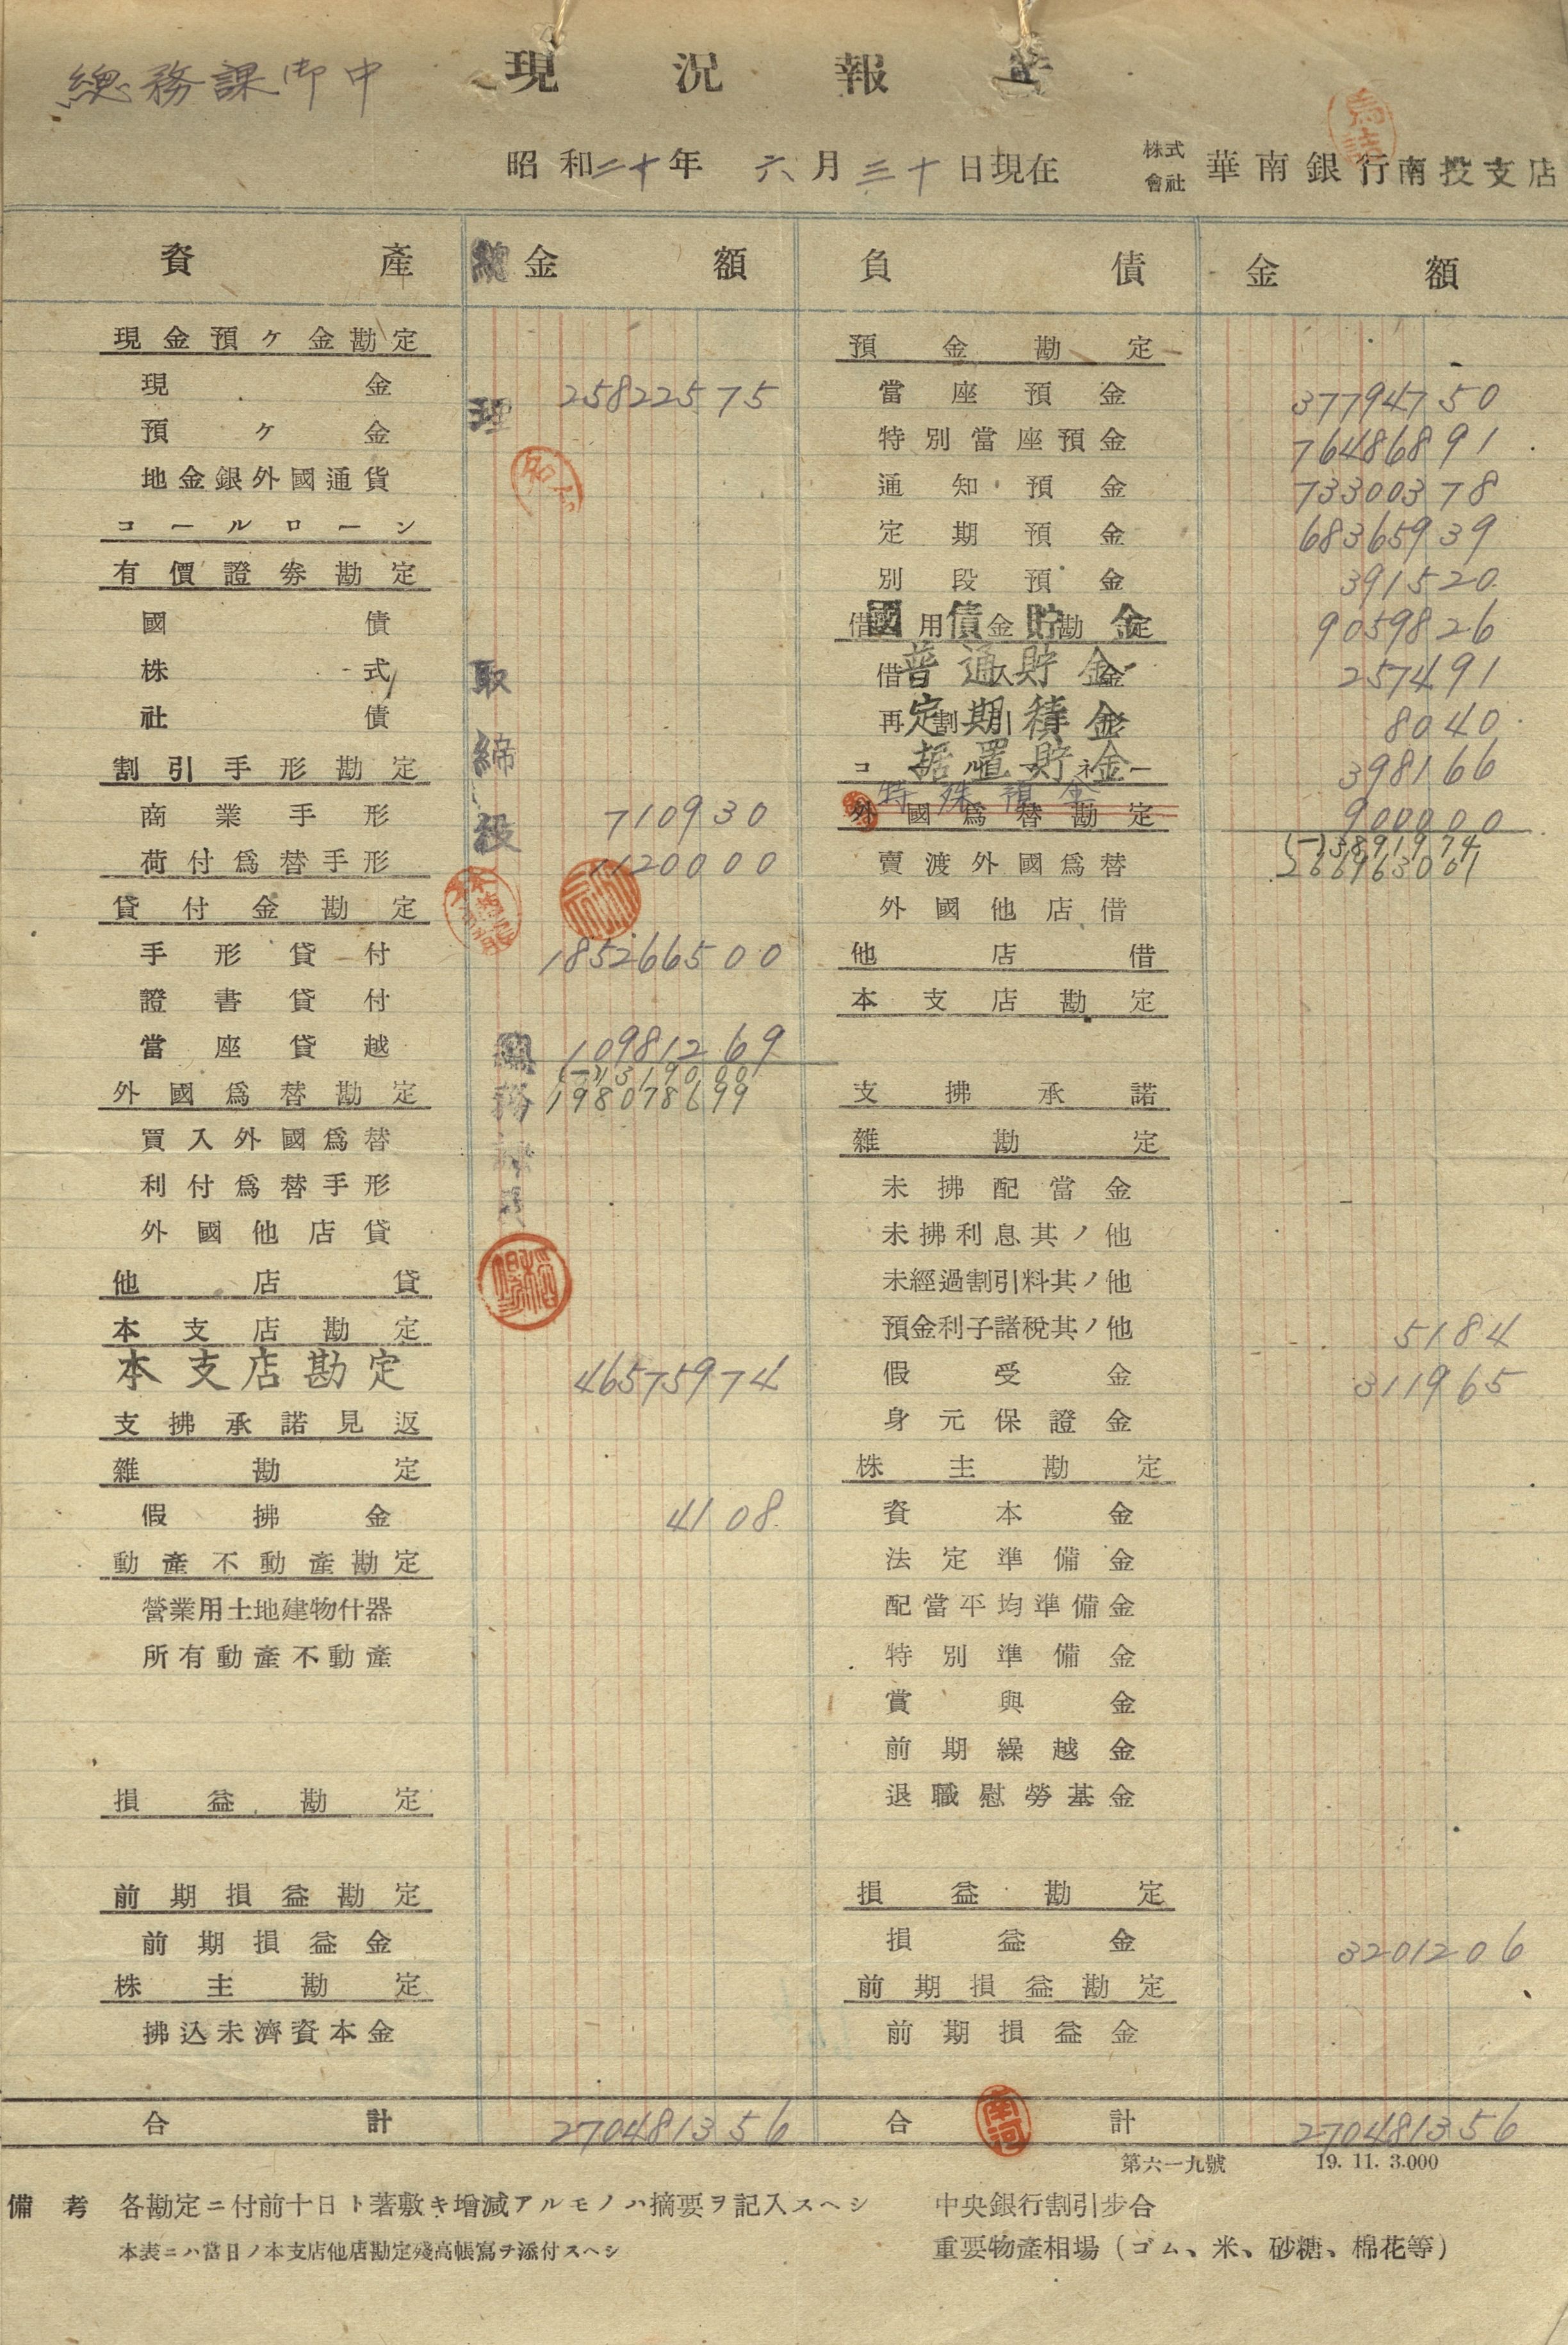 總務課御中
現況報告
昭和二十年 六月三十日現在
株式會社 華南銀行南投支店
資產 金額 負債 金額
現金預ケ金勘定
現金 258225 75
預ケ金
地金銀外國通貨
コールローン
有價證券勘定
國債
株式
社債
割引手形勘定
商業手形 7109 30
荷付爲替手形 11200 00
貸付金勘定
手形貸付 1852665 00
證書貸付
當座貸越 109812 69
(一)13190 00
1980786 99
外國爲替勘定
買入外國爲替
利付爲替手形
外國他店貸
他店貸
本支店勘定
本支店勘定 465759 74
支拂承諾見返
雜勘定
假拂金 41 08
動產不動產勘定
營業用土地建物什器
所有動產不動產
損益勘定
前期損益勘定
前期損益金
株主勘定
拂込未濟資本金
合計 2704813 56
總
理
取
締
役
業
務
課
長
預金勘定
當座預金 377947 50
特別當座預金 764868 91
通知預金 733003 78
定期預金 683659 39
別段預金 3915 20
借用金勘定
國債貯金 90598 26
借入金
普通貯金 2574 91
再割引手形
定期積金 80 40
コールマネー
据置貯金 3981 66
特殊預金 9000 00
外國爲替勘定
(一)38919 74
2669630 01
賣渡外國爲替
外國他店借
他店借
本支店勘定
支拂承諾
雜勘定
未拂配當金
未拂利息其ノ他
未經過割引料其ノ他
預金利子諸稅其ノ他 51 84
假受金 3119 65
身元保證金
株主勘定
資本金
法定準備金
配當平均準備金
特別準備金
賞與金
前期繰越金
退職慰勞基金
損益勘定
損益金 32012 06
前期損益勘定
前期損益金
合計 2704813 56
第六一九號 19. 11. 3.000
備考 各勘定ニ付前十日ト著敷キ增減アルモノハ摘要ヲ記入スヘシ
本表ニハ當日ノ本支店他店勘定殘高帳寫ヲ添付スヘシ
中央銀行割引步合
重要物產相場(ゴム、米、砂糖、棉花等)